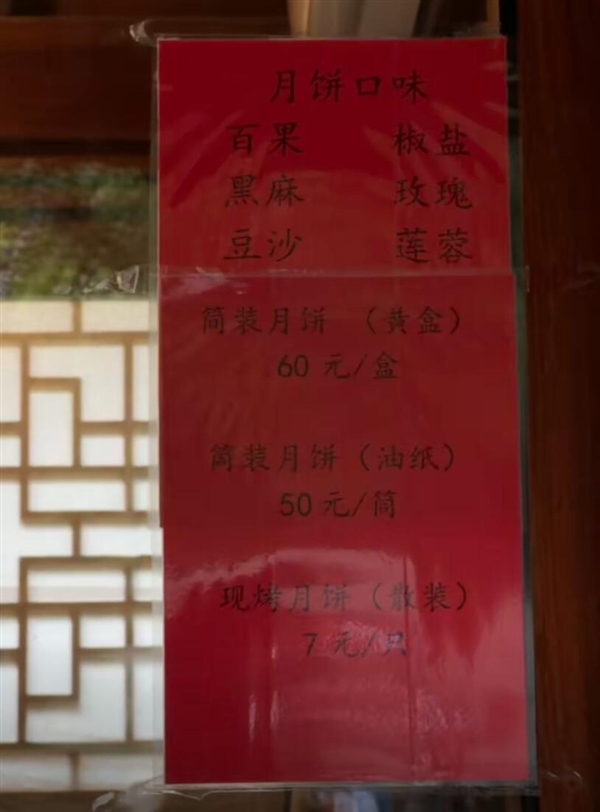 月饼口味
百果 椒盐
黑麻 玫瑰
豆沙 莲蓉
简装月饼 (黄盒)
60 元/盒
筒装月饼 (油纸)
50 元/筒
现烤月饼 (散装)
7 元/只